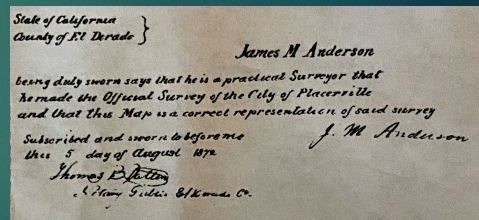 State of California }
County of El Dorado }
James M Anderson
being duly sworn says that he is a practical Surveyor that
he made the Official Survey of the City of Placerville
and that this Map is a correct representation of said survey
Subscribed and sworn to before me
this 5 day of August 1872
J. M Anderson
Thomas B
Notary Public El Dorado Co.